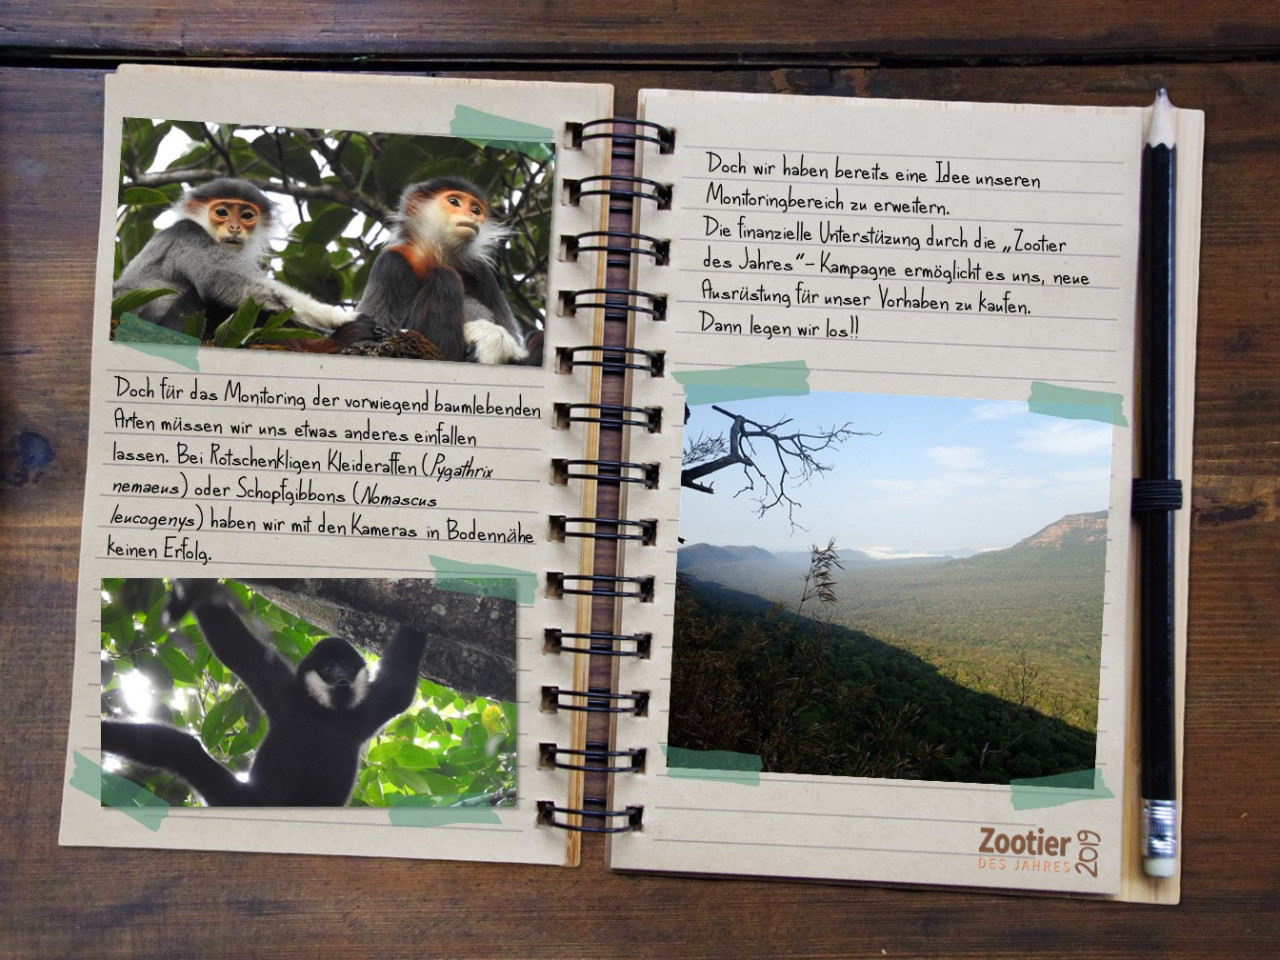 Doch für das Monitoring der vorwiegend baumlebenden
Arten müssen wir uns etwas anderes einfallen
lassen. Bei Rotschenkligen Kleideraffen (Pygathrix
nemaeus) oder Schopfgibbons (Nomascus
leucogenys) haben wir mit den Kameras in Bodennähe
keinen Erfolg.
Doch wir haben bereits eine Idee unseren
Monitoringbereich zu erweitern.
Die finanzielle Unterstüzung durch die „Zootier
des Jahres“-Kampagne ermöglicht es uns, neue
Ausrüstung für unser Vorhaben zu kaufen.
Dann legen wir los!!
Zootier
DES JAHRES
2019